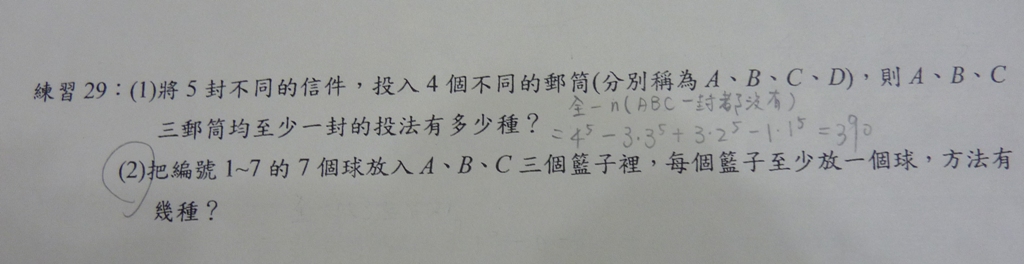 練習29：(1)將5封不同的信件，投入4個不同的郵筒(分別稱為A、B、C、D)，則A、B、C
全－n(ABC一封都沒有)
三郵筒均至少一封的投法有多少種？ = 4⁵ － 3·3⁵ + 3·2⁵ － 1·1⁵ = 390
(2)把編號1~7的7個球放入A、B、C三個籃子裡，每個籃子至少放一個球，方法有
幾種？